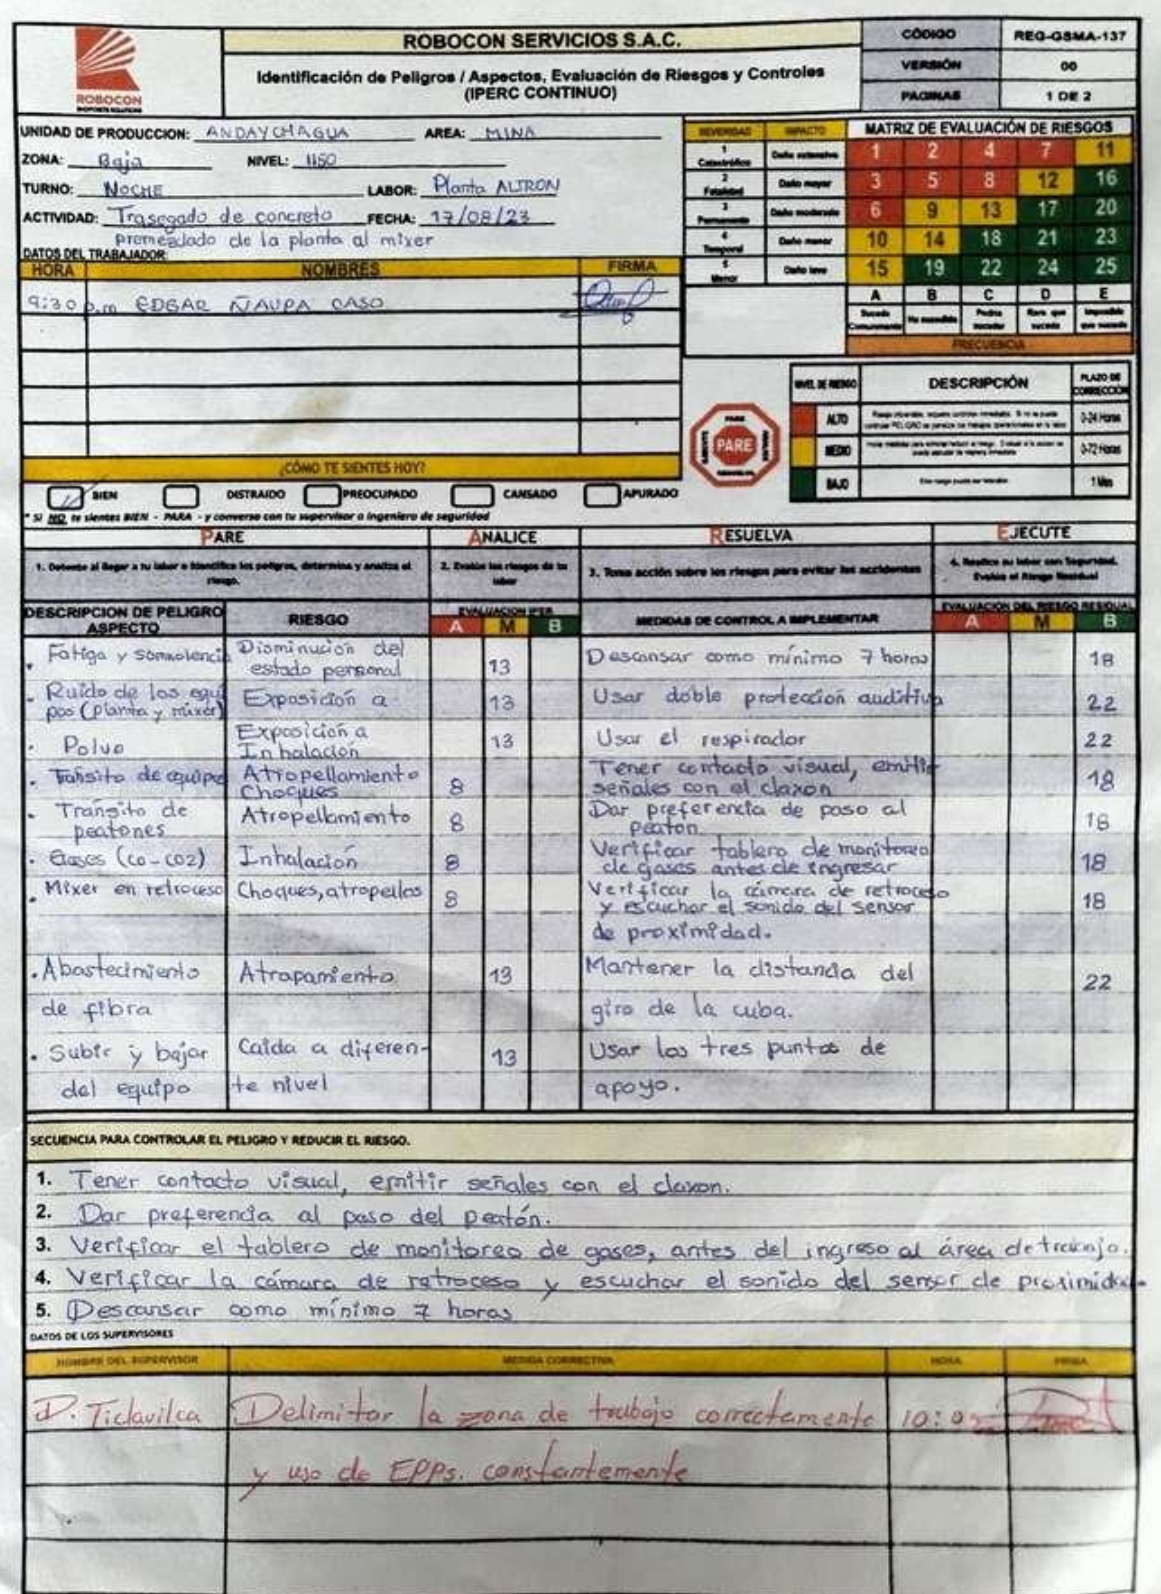 ROBOCON SERVICIOS S.A.C.
Identificación de Peligros / Aspectos, Evaluación de Riesgos y Controles
(IPERC CONTINUO)
CÓDIGO REG-GSMA-137
VERSIÓN 00
PAGINAS 1 DE 2
ROBOCON
UNIDAD DE PRODUCCION: ANDAYCHAGUA AREA: MINA
ZONA: Baja NIVEL: 1150
TURNO: NOCHE LABOR: Planta ALTRON
ACTIVIDAD: Trasegado de concreto FECHA: 17/08/23
premezclado de la planta al mixer
DATOS DEL TRABAJADOR:
HORA NOMBRES FIRMA
9:30 p.m EDGAR ÑAUPA CASO
SEVERIDAD IMPACTO MATRIZ DE EVALUACIÓN DE RIESGOS
1 Catastrófico Daño extensivo 1 2 4 7 11
2 Fatalidad Daño mayor 3 5 8 12 16
3 Permanente Daño moderado 6 9 13 17 20
4 Temporal Daño menor 10 14 18 21 23
5 Menor Daño leve 15 19 22 24 25
A B C D E
Sucede Comunmente Ha sucedido Podria suceder Raro que suceda Imposible que suceda
FRECUENCIA
NIVEL DE RIESGO DESCRIPCIÓN PLAZO DE CORRECCION
ALTO 0-24 Horas
MEDIO 0-72 Horas
BAJO 1 Mes
PARE
PARE
¿CÓMO TE SIENTES HOY?
BIEN DISTRAIDO PREOCUPADO CANSADO APURADO
* Si NO te sientes BIEN - PARA - y conversa con tu supervisor o ingeniero de seguridad
PARE ANALICE RESUELVA EJECUTE
1. Detente al llegar a tu labor e identifica los peligros, determina y analiza el riesgo.
2. Evalúa los riesgos de tu labor
3. Toma acción sobre los riesgos para evitar los accidentes
4. Realice su labor con Seguridad. Evalúe el Riesgo Residual
DESCRIPCION DE PELIGRO ASPECTO RIESGO EVALUACION IPER A M B MEDIDAS DE CONTROL A IMPLEMENTAR EVALUACION DEL RIESGO RESIDUAL A M B
. Fatiga y somnolencia Disminución del estado personal 13 Descansar como mínimo 7 horas 18
. Ruido de los equipos (planta y mixer) Exposición a 13 Usar doble protección auditiva 22
. Polvo Exposición a Inhalación 13 Usar el respirador 22
. Tránsito de equipo Atropellamiento Choques 8 Tener contacto visual, emitir señales con el claxon 18
. Tránsito de peatones Atropellamiento 8 Dar preferencia de paso al peaton 18
. Gases (co-co2) Inhalación 8 Verificar tablero de monitoreo de gases antes de ingresar 18
. Mixer en retroceso Choques, atropellos 8 Verificar la cámara de retroceso y escuchar el sonido del sensor de proximidad. 18
. Abastecimiento de fibra Atrapamiento 13 Mantener la distancia del giro de la cuba. 22
. Subir y bajar del equipo Caída a diferente nivel 13 Usar los tres puntos de apoyo.
SECUENCIA PARA CONTROLAR EL PELIGRO Y REDUCIR EL RIESGO.
1. Tener contacto visual, emitir señales con el claxon.
2. Dar preferencia al paso del peatón.
3. Verificar el tablero de monitoreo de gases, antes del ingreso al área de trabajo.
4. Verificar la cámara de retroceso y escuchar el sonido del sensor de proximidad
5. Descansar como mínimo 7 horas
DATOS DE LOS SUPERVISORES
NOMBRE DEL SUPERVISOR MEDIDA CORRECTIVA HORA FIRMA
D. Ticlavilca Delimitar la zona de trabajo correctamente
y uso de EPPs. constantemente